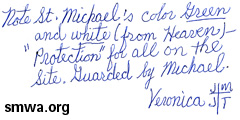 Note St. Michael's color Green
and white (from Heaven)—
"Protection" for all on the
Site. Guarded by Michael.
Veronica J|M
J|T
smwa.org